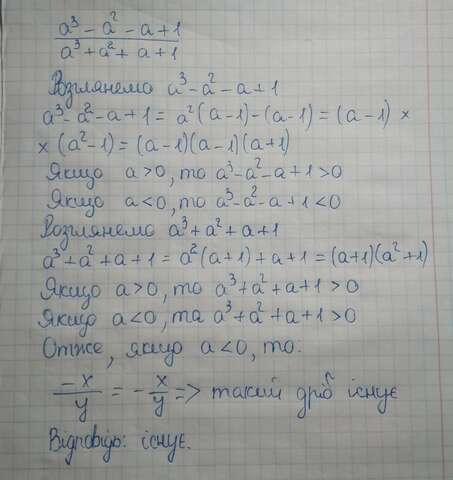 a³ - a² - a + 1
a³ + a² + a + 1
Розглянемо a³ - a² - a + 1
a³ - a² - a + 1 = a²(a - 1) - (a - 1) = (a - 1) ×
× (a² - 1) = (a - 1)(a - 1)(a + 1)
Якщо a > 0, то a³ - a² - a + 1 > 0
Якщо a < 0, то a³ - a² - a + 1 < 0
Розглянемо a³ + a² + a + 1
a³ + a² + a + 1 = a²(a + 1) + a + 1 = (a + 1)(a² + 1)
Якщо a > 0, то a³ + a² + a + 1 > 0
Якщо a < 0, та a³ + a² + a + 1 > 0
Отже, якщо a < 0, то:
-x/y = -x/y => такий дріб існує
Відповідь: існує.